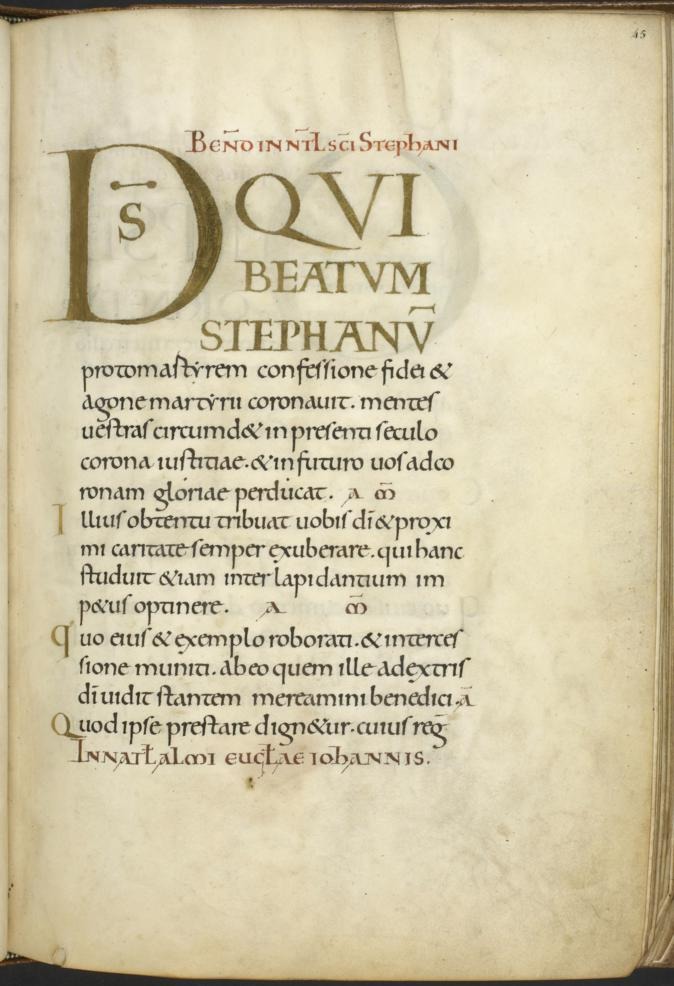 45
BEÑD IN NT̄L SC̄I STEPHANI
DS̄ QVI
BEATVM
STEPHANV̄
protomastẏrem confessione fidei &
agone martẏrii coronauit. mentes
uestras circumd& in presenti seculo
corona iustitiae. & in futuro uos ad co
ronam gloriae perducat. A M̄
Illius obtentu tribuat uobis dī & proxi
mi caritate semper exuberare. qui hanc
studuit &iam inter lapidantium im
p&us optinere. A M̄
Quo eius & exemplo roborati. & interces
sione muniti. ab eo quem ille a dextris
dī uidit stantem mereamini benedici. Ā
Quod ipse prestare dign&ur. cuius reḡ
IN NAT̄L ALMI EUGL̄AE IOHANNIS.